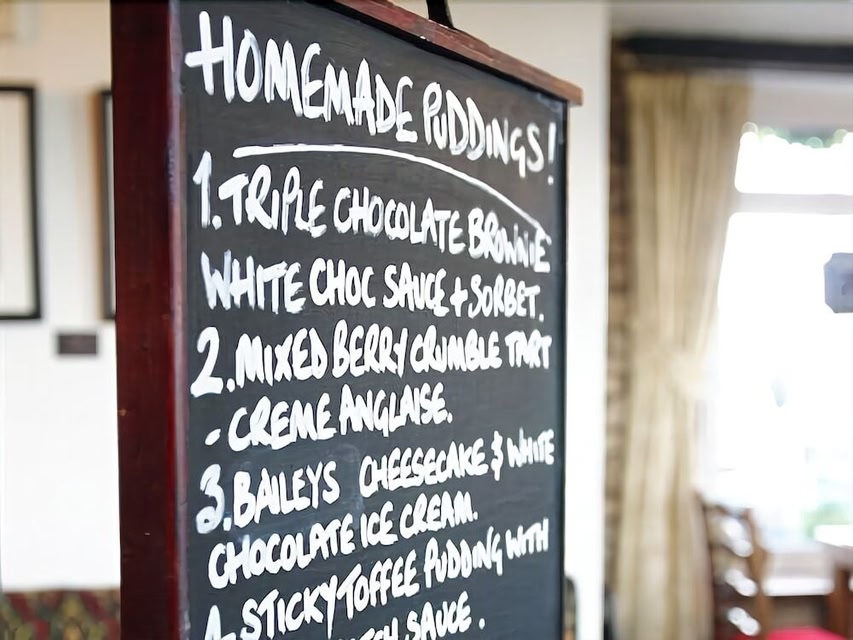 HOMEMADE PUDDINGS!
1. TRIPLE CHOCOLATE BROWNIE
WHITE CHOC SAUCE + SORBET.
2. MIXED BERRY CRUMBLE TART
- CREME ANGLAISE.
3. BAILEYS CHEESECAKE & WHITE
CHOCOLATE ICE CREAM.
4. STICKY TOFFEE PUDDING WITH
SAUCE.